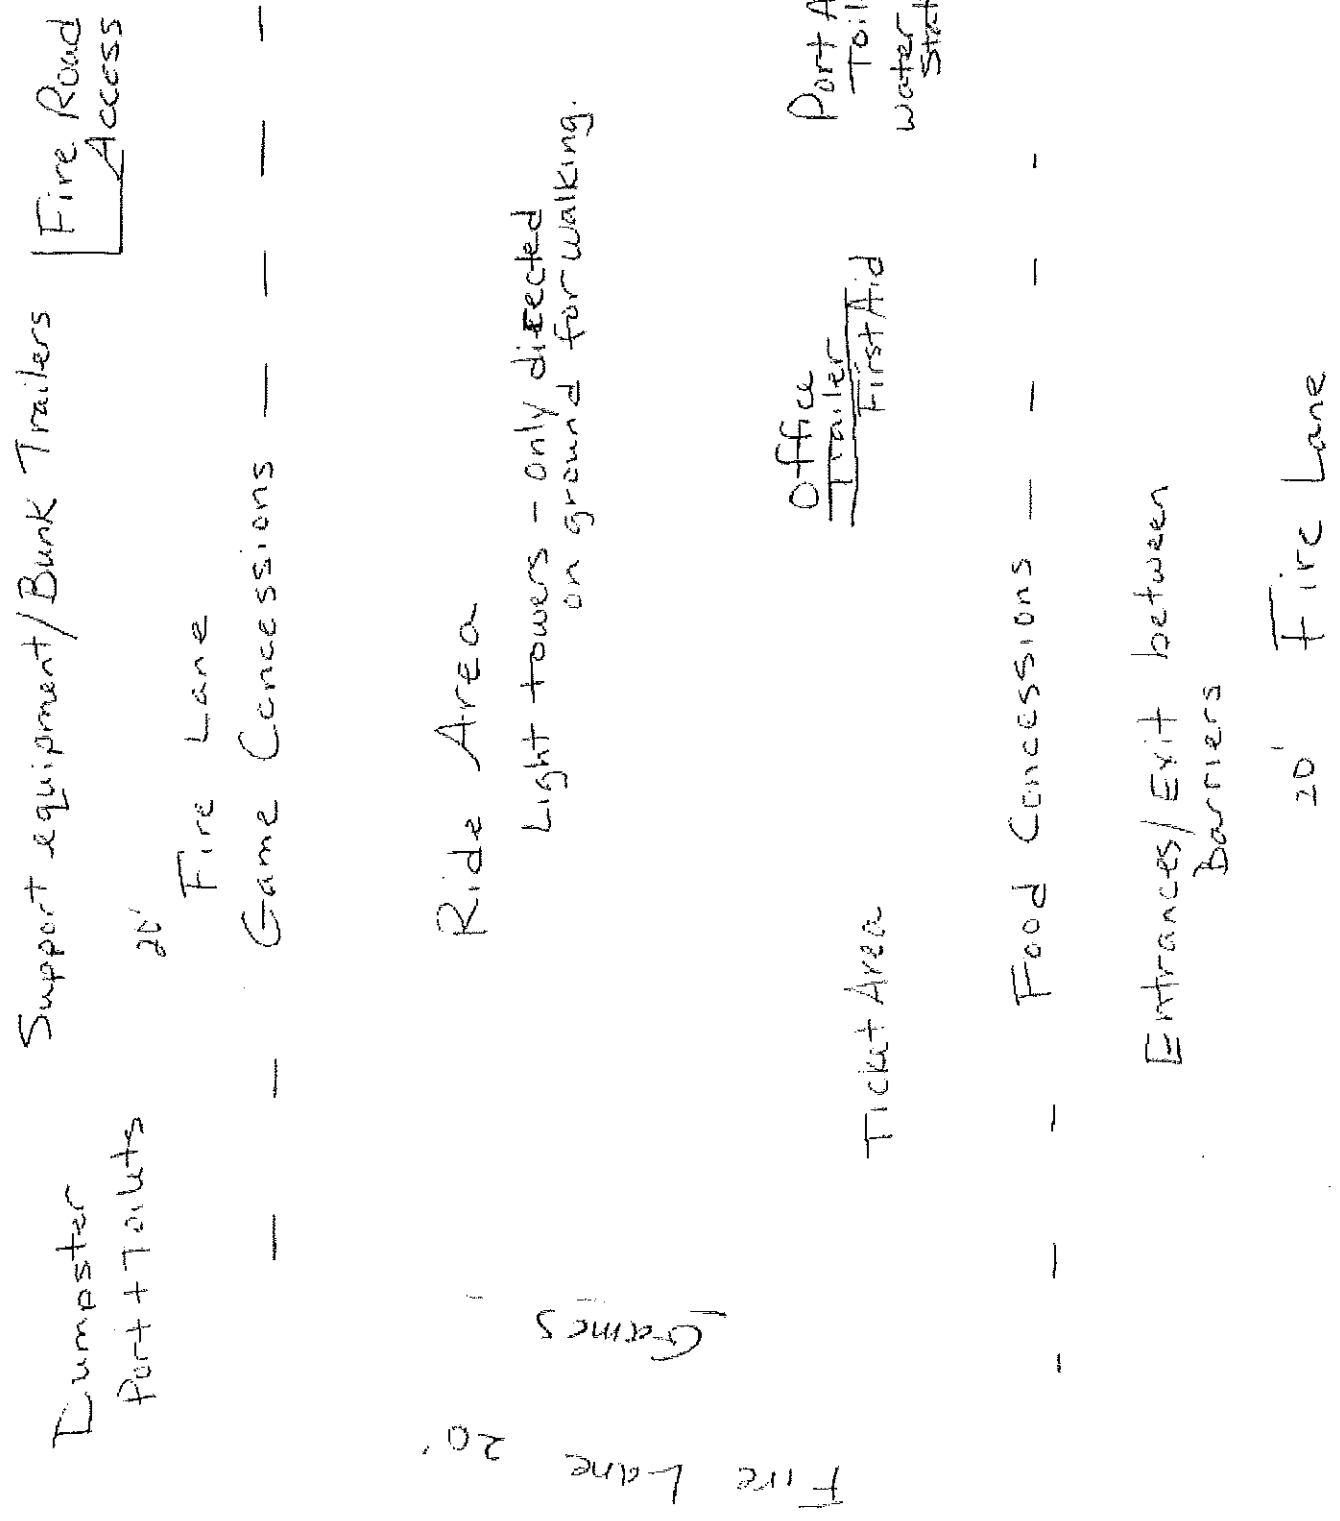 Dumpster
Port + Toilets
Support equipment/Bunk Trailers
Fire Road
Access
20'
Fire Lane
Game Concessions
Ride Area
Light towers - only directed
on ground for walking.
Games
Fire Lane 20'
Ticket Area
Office
Trailer
First Aid
Port A
Toil
Water
Stat
Food Concessions
Entrances/Exit between
Barriers
20' Fire Lane